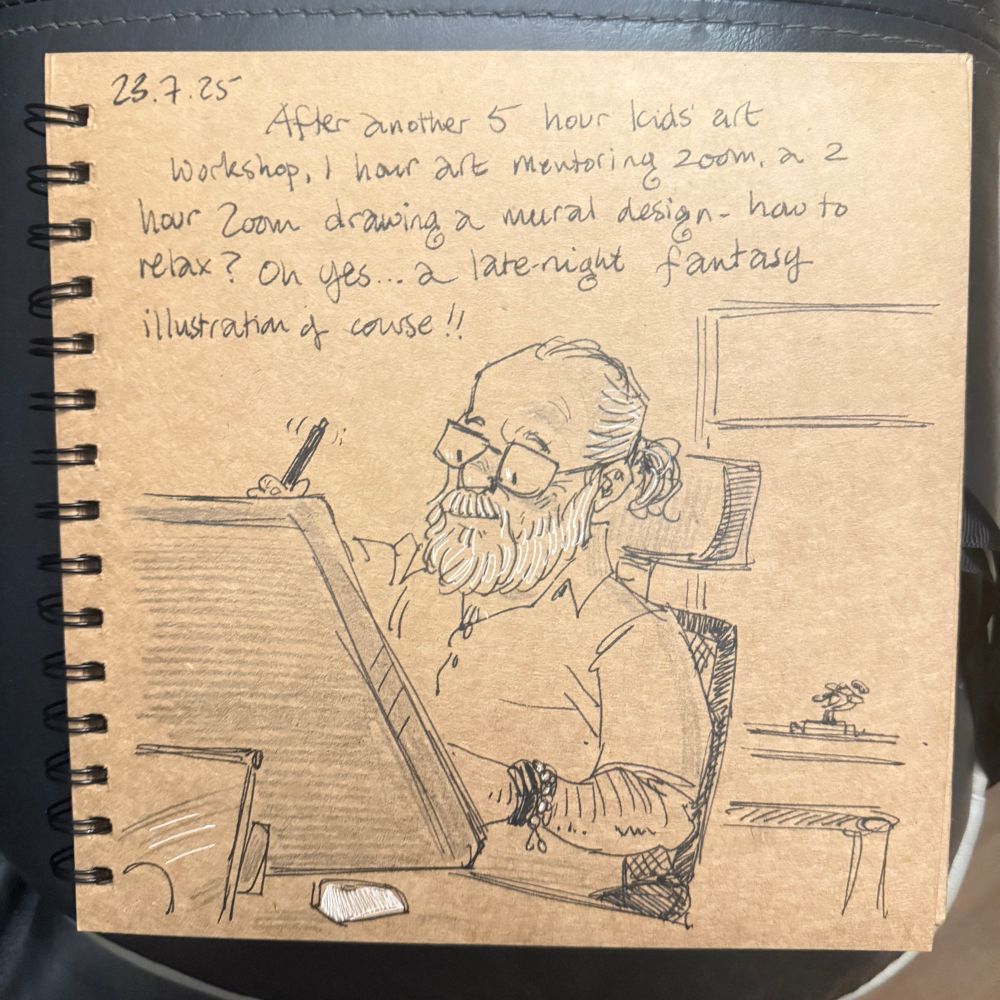 23.7.25
After another 5 hour kids' art
workshop, 1 hour art mentoring zoom, a 2
hour Zoom drawing a mural design - how to
relax? Oh yes... a late-night fantasy
illustration of course!!